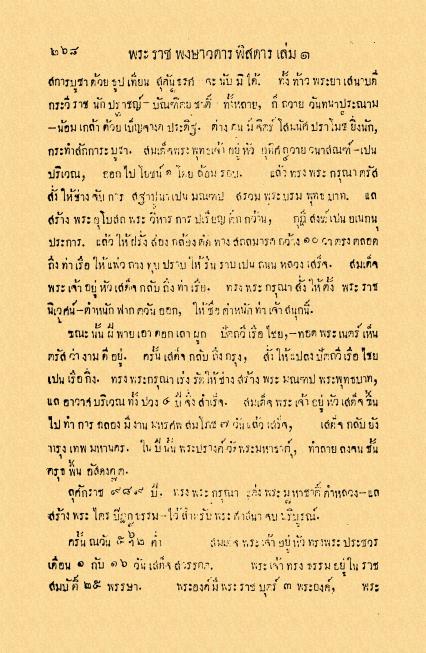 ๒๖๘ พระ ราช พงษาวดาร พิสดาร เล่ม ๑
สการบูชา ด้วย ธูป เทียน สุคันธรศ จะ นับ มิ ได้. ทั้ง ท้าว พระยา เสนาบดี
กระวี ราช นัก ปราชญ์-บัณฑิตย ชาติ ทั้งหลาย, ก็ ถวาย วันทนาประณาม
-น้อม เกล้า ด้วย เบ็ญจางค ประดิฐ. ต่าง คน มี จิตร์ โสมนัศ ปราโมช ยิ่งนัก,
กระทำสักการะ บูชา. สมเด็จพระพุทธเจ้า อยู่ หัว อุทิศ ถวาย วนาสณฑ์-เปน
บริเวณ, ออก ไป โยชน์ ๑ โดย ล้อม รอบ. แล้ว ทรง พระ กรุณา ตรัส
สั่ง ให้ ช่าง จับ การ สฐาปนา เปน มณฑป สรวม พระ บรม พุทธ บาท. แล
สร้าง พระ อุโบสถ พระ วิหาร การ ปเรียญ ตึก กว้าน, กุฎี สงฆ์ เปน อเนกนุ
ประการ. แล้ว ให้ ฝรั่ง ส่อง กล้อง ตัด ทาง สถลมารค กว้าง ๑๐ วา ตรง ตลอด
ถึง ท่า เรือ ให้ แผ้ว ถาง ทุบ ปราบ ให้ รื่น ราบ เปน ถนน หลวง เสร็จ. สมเด็จ
พระ เจ้า อยู่ หัว เสด็จ กลับ ถึง ท่า เรือ. ทรง พระ กรุณา สั่ง ให้ ตั้ง พระ ราช
นิเวศน์-ตำหนัก ฟาก ตวัน ออก, ให้ ชื่อ ตำหนัก ท่า เจ้า สนุกนี้.
ขณะ นั้น ฝี พาย เอา ดอก เลา ผูก ปัดถวี เรือ ไชย,-ทอด พระ เนตร์ เห็น
ตรัส ว่า งาม ดี อยู่. ครั้น เสด็จ กลับ ถึง กรุง, สั่ง ให้ แปลง ปัดถวี เรือ ไชย
เปน เรือ กิ่ง. ทรง พระกรุณา เร่ง รัด ให้ ช่าง สร้าง พระ มณฑป พระพุทธบาท,
แล อาวาศ บริเวณ ทั้ง ปวง ๔ ปี จึ่ง สำเร็จ. สมเด็จ พระ เจ้า อยู่ หัว เสด็จ ขึ้น
ไป ทำ การ ฉลอง มี งาน มหรศพ สมโภช ๗ วัน แล้ว เสร็จ, เสด็จ กลับ ยัง
กรุง เทพ มหานคร. ใน ปี นั้น พระปรางค์ วัด พระมหาธาตุ์, ทำลาย ลงจน ชั้น
ครุธ พื้น อัสดงคต.
ลุศักราช ๙๘๙ ปี. ทรง พระ กรุณา แต่ง พระ มหาชาติ์ คำหลวง-แล
สร้าง พระ ไตร ปิฎก ธรรม-ไว้ สำหรับ พระ สาศนา จบ บริบูรณ์.
ครั้น ณวัน สมเด็จ พระ เจ้า อยู่ หัว ทรงพระ ประชวร
เดือน ๑ กับ ๑๖ วัน เสด็จ สวรรคต. พระเจ้า ทรง ธรรม อยู่ ใน ราช
สมบัติ ๒๕ พรรษา. พระองค์ มี พระ ราช บุตร์ ๓ พระองค์, พระ